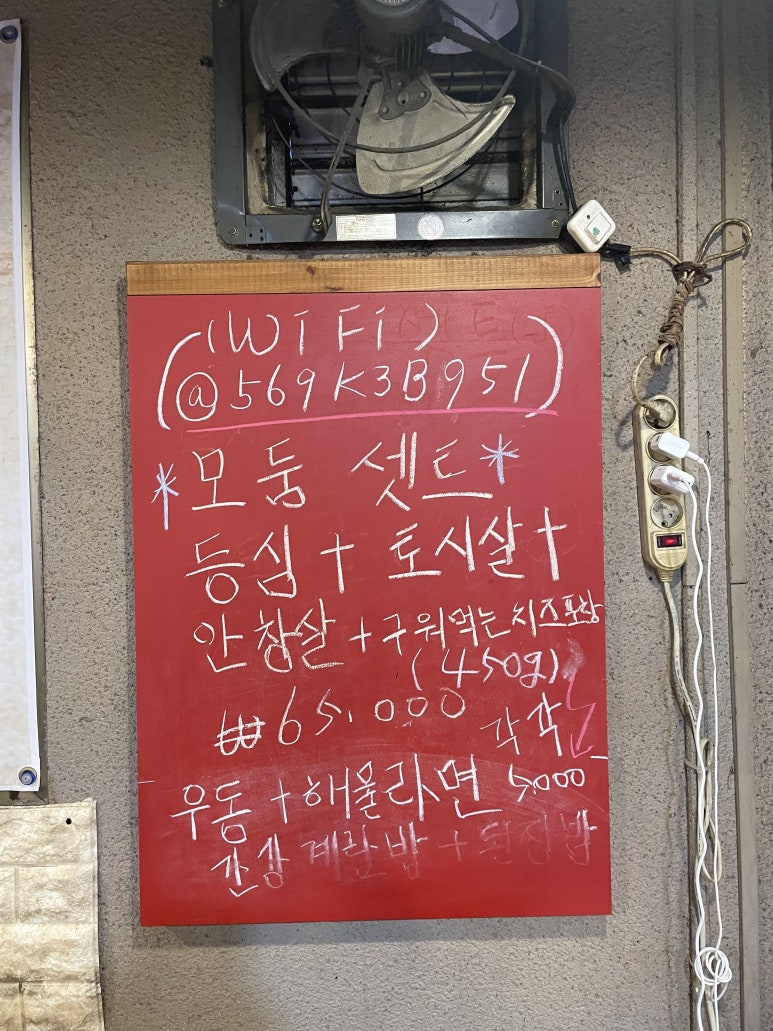 (WiFi)
(@569K3B951)
*모둠 셋트*
등심+토시살+
안창살+구워먹는치즈포함
(450g)
₩65,000
각각
우동+해물라면 5000
간장계란밥+된장밥